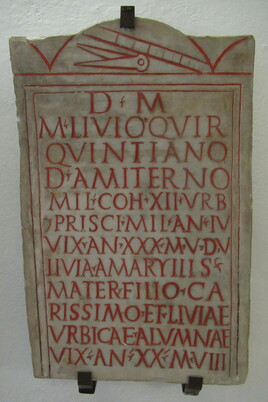 D M
M·LIVIO·QVIR
QVINTIANO
D·AMITERNO
MIL·COH·XII·VRB
PRISCI·MIL·AN·IV
VIX·AN·XXX·M·V·D·V
LIVIA·AMARYLLIS
MATER·FILIO·CA
RISSIMO·ET·LIVIAE
VRBICAE·ALVMNAE
VIX·AN·XX·M·VIII